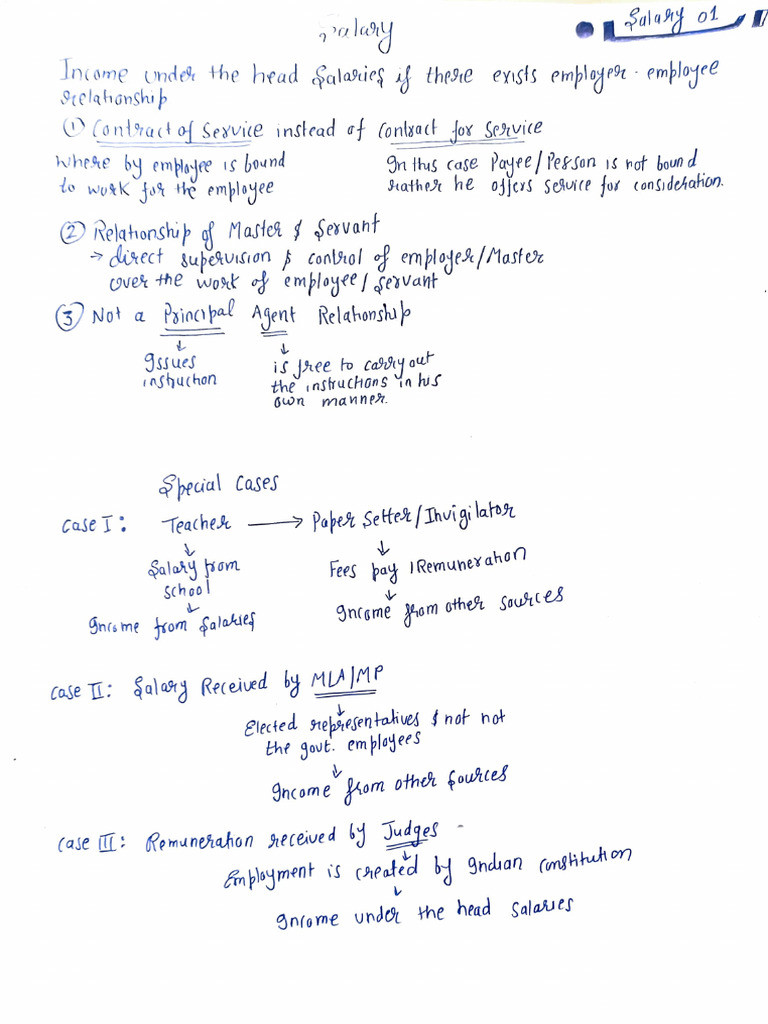 Salary
Salary 01
Income under the head Salaries if there exists employer - employee
relationship
① Contract of Service instead of Contract for Service
Where by employee is bound
to work for the employee
In this case Payee/Person is not bound
rather he offers service for consideration.
② Relationship of Master & Servant
→ direct supervision & control of employer/Master
over the work of employee/servant
③ Not a Principal Agent Relationship
↓ ↓
Issues
instruction
is free to carry out
the instructions in his
own manner.
Special Cases
Case I: Teacher → Paper Setter/Invigilator
↓ ↓
Salary from
school
↓
Income from Salaries
Fees pay /Remuneration
↓
Income from other sources
Case II: Salary Received by MLA/MP
↓
Elected representatives & not not
the govt. employees
↓
Income from other Sources
Case III: Remuneration received by Judges -
↓
Employment is created by Indian constitution
↓
Income under the head Salaries